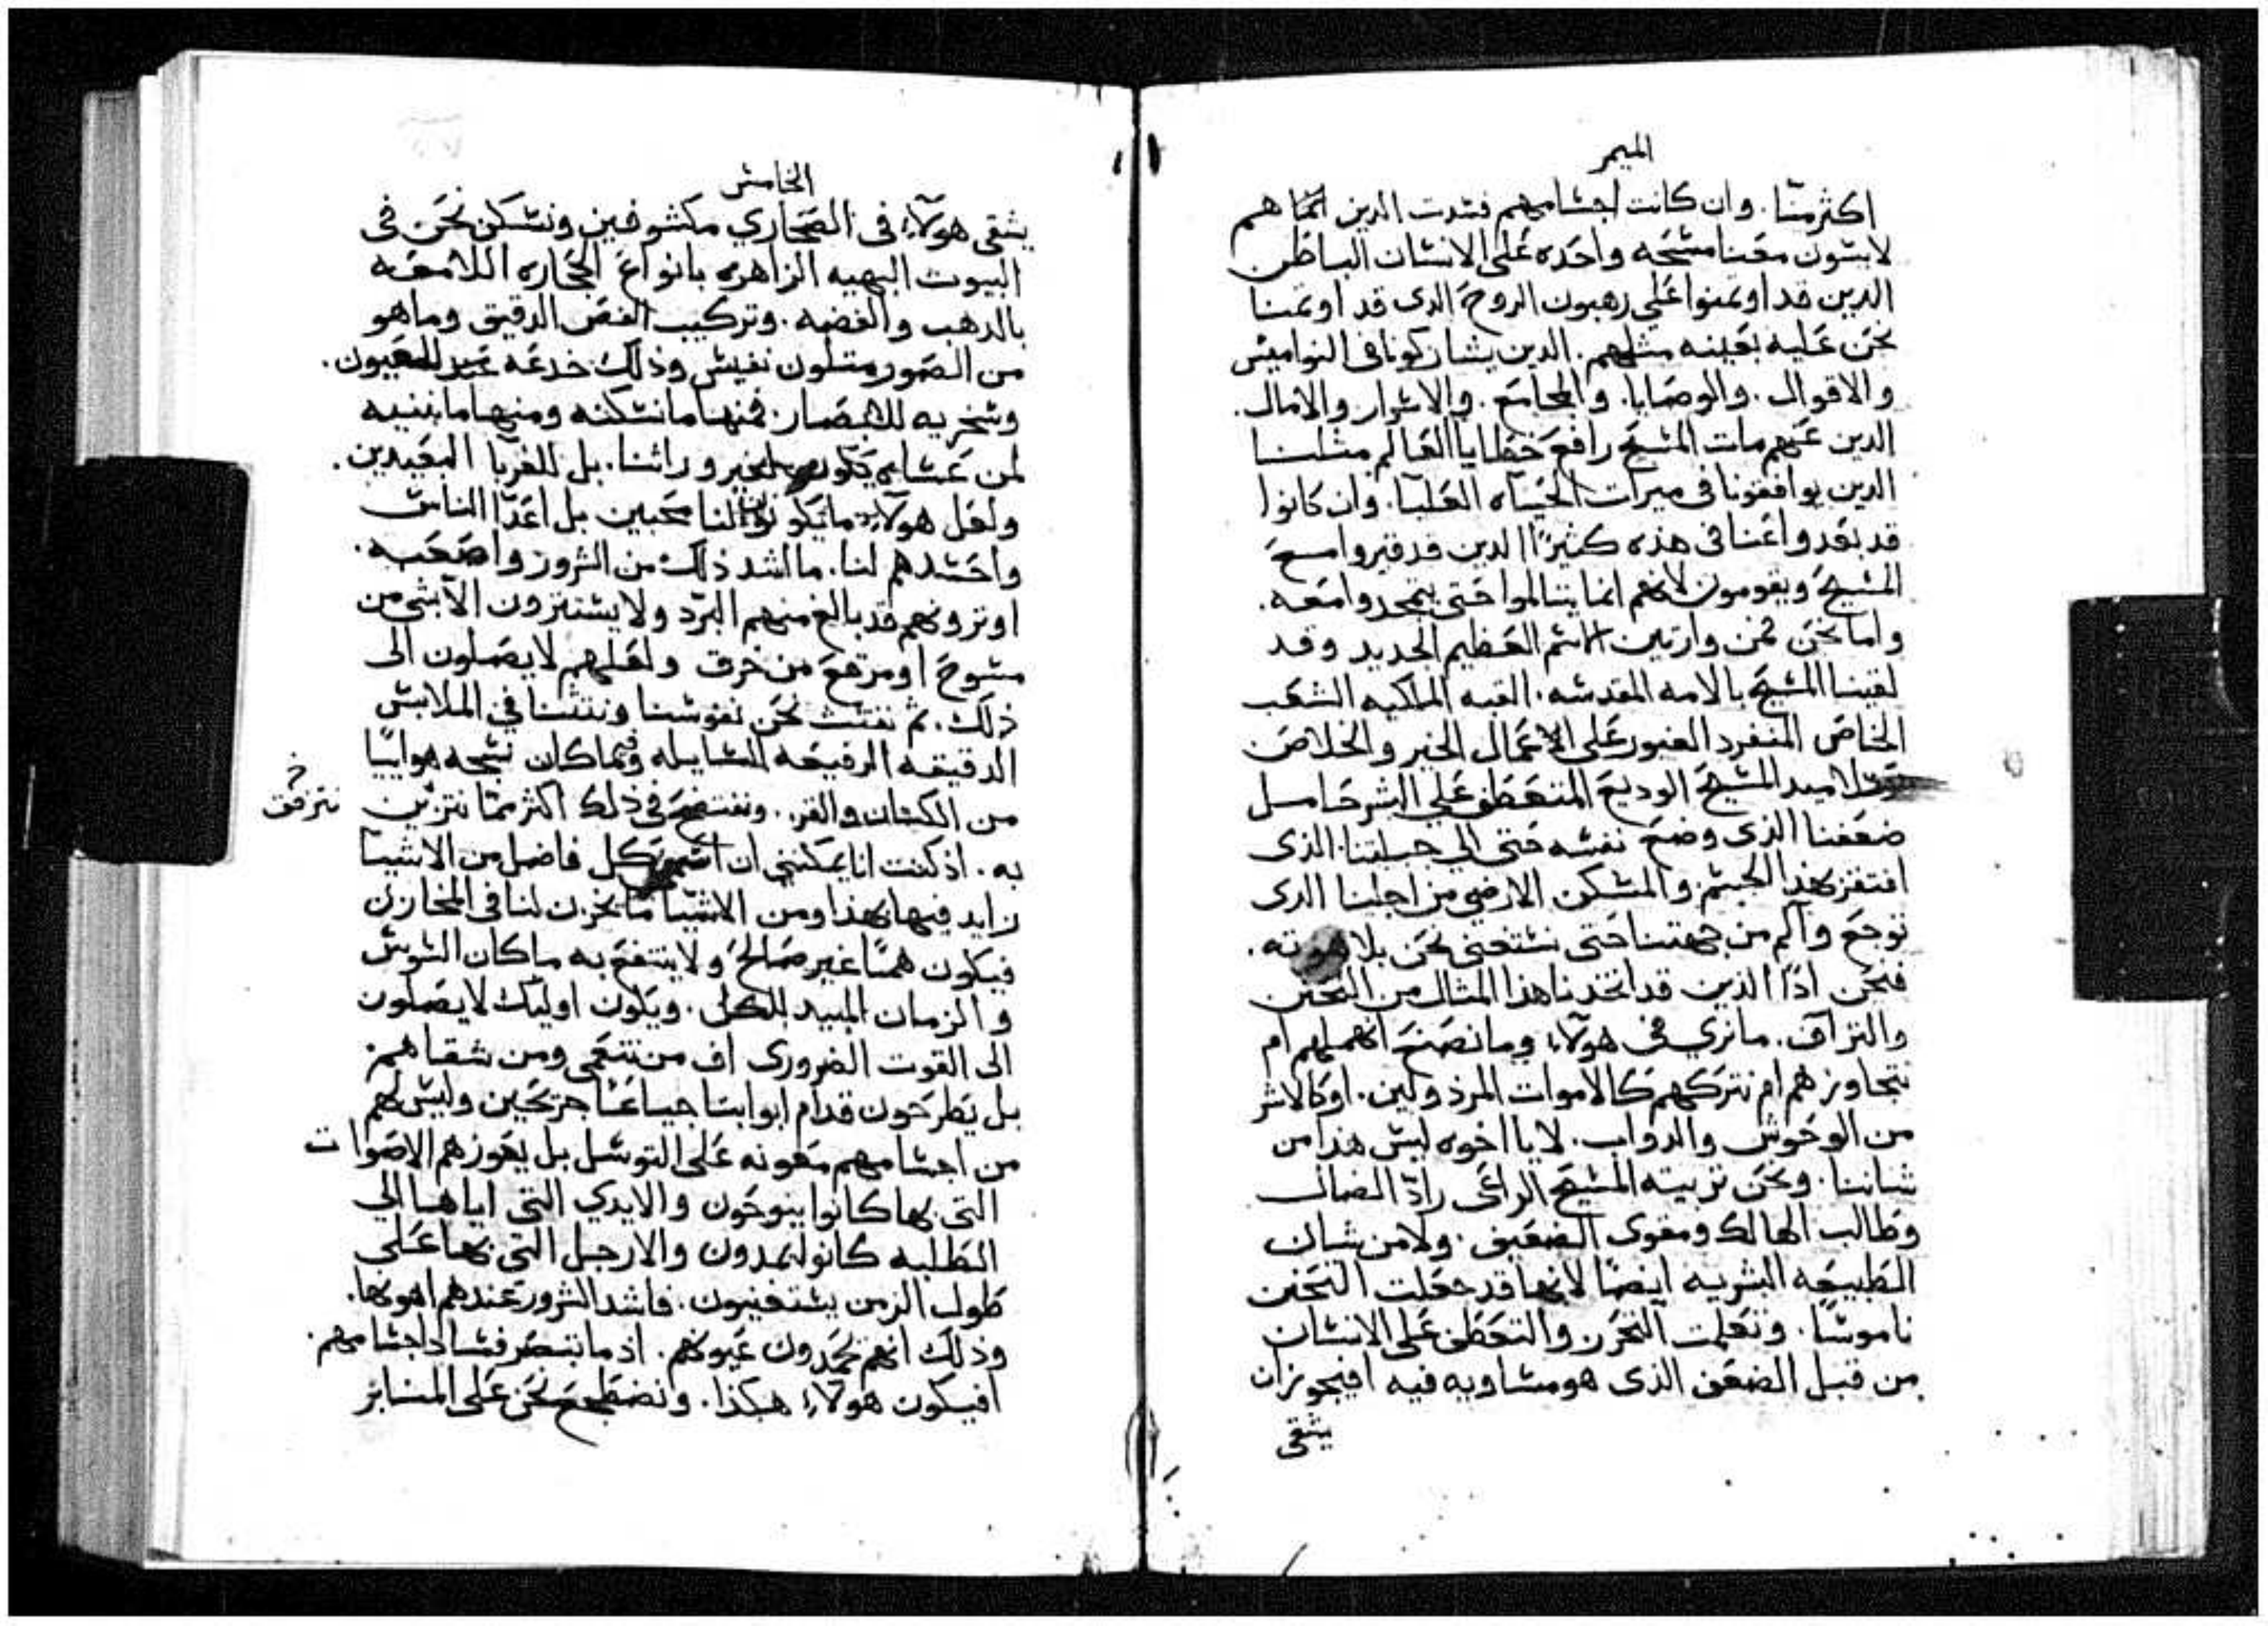 الميمر
اكثر منّا. وان كانت اجسامهم فسدت الدين انما هم
لابسون معنا مسحه واحده على الانسان الباطن
الدين قد اوتمنوا على رهبون الروح الدى قد اوتمنا
نحن عليه بعينه مثلهم. الدين يشاركونا فى النواميس
والاقوال. والوصايا. والمجامع. والاسرار والامال.
الدين عنهم مات المسيح رافع خطايا العالم مثلنا
الدين يوافقونا فى ميرات الحياه العليا. وان كانوا
قد بعدوا عنا فى هذه كثيرًا الدين قد قبروا مع
المسيح ويقومون لانهم انما يتالموا حتى يتمجدوا معه.
واما نحن فمن وارتين الاسم العظيم الجديد وقد
لقبنا المسيح بالامه المقدسه. القبه الملكيه الشعب
الخاص المنفرد الغيور على الاعمال الخير والخلاص
تلاميد المسيح الوديع المتعطف على البشر حامل
ضعفنا الذى وضع نفسه حتى الى جبلتنا. الذى
افتقر بهذا الجسم والمسكن الارضي من اجلنا الدى
توجع وآلم من جهتنا حتى نستغنى نحن بلاهوته.
فنحن اذًا الذين قد اتخدنا هذا المثال من التحنن
والتراف. ما نرى فى هولآء وما نصنع انهملهم ام
نتجاوزهم ام نتركهم كالاموات المرذولين. اوكالاشر
من الوحوش والدواب. لا يا اخوه ليس هذا من
شاننا. ونحن تربيته المسيح الراعى رادّ الضال
وطالب الهالك ومقوى الضعيف. ولا من شان
الطبيعه البشريه ايضًا لانها قد جعلت التحنن
ناموسًا. وتعلمت التحزن والتعطف على الانسان
من قبل الضعف الذى هو مساويه فيه افيجوز ان
يشقى
الخامس
يشقى هولآء فى الصحاري مكشوفين ونسكن نحن فى
البيوت البهيه الزاهره بانواع الحجاره اللامعه
بالدهب والفضه. وتركيب الفص الدقيق وما هو
من الصور متلون نفيس وذلك خدعه للعيون.
وسخريه للابصار. فمنها ما نسكنه ومنها ما نبنيه
لمن عساه يكون لغير وراثنا. بل للغربا البعيدين.
ولعل هولآء ما يكونوا لنا محبين بل اعدّا الناس
واحسدهم لنا. ما اشد ذلك من الشرور واصعبه.
اوترونهم قد بالغ منهم البرّد ولا يستترون الا بشى من
مسوح اومرقع من خرق ولعلهم لا يصلون الى
ذلك. ثم نفتت نحن نفوسنا ونتتنا في الملابس
الدقيقه الرفيعه السايله وفيما كان نسجه هواييًا
من الكتان والقز. ونفتضح فى ذلك اكثر ممّا نتزين
نترفق
به. اذ كنت انا يمكننى ان اسمى كل فاضل من الاشيا
زايد فيها بهذا ومن الاشيا ما يخزن لنا فى المخازن
فيكون همًا غير صالح ولا ينتفع به ما كان السوس
والزمان المبيد للكل. ويكون اوليك لا يصلون
الى القوت الضرورى اف من تنعمى ومن شقاهم.
بل يطرحون قدام ابوابنا جياعًا جزعين وليس لهم
من اجسامهم معونه على التوسل بل يعوزهم الاصوات
التى بها كانوا ينوحون والايدي التى اياها الى
الطلبه كانوا يمدون والارجل التى بها على
طول الزمن يستغنيون. فاشد الشرور عندهم اهونها.
وذلك انهم يحمدون عيونهم. اذ ما تبصر فساد اجسامهم.
افيكون هولآء هكذا. ونضطجع نحن على المنابر